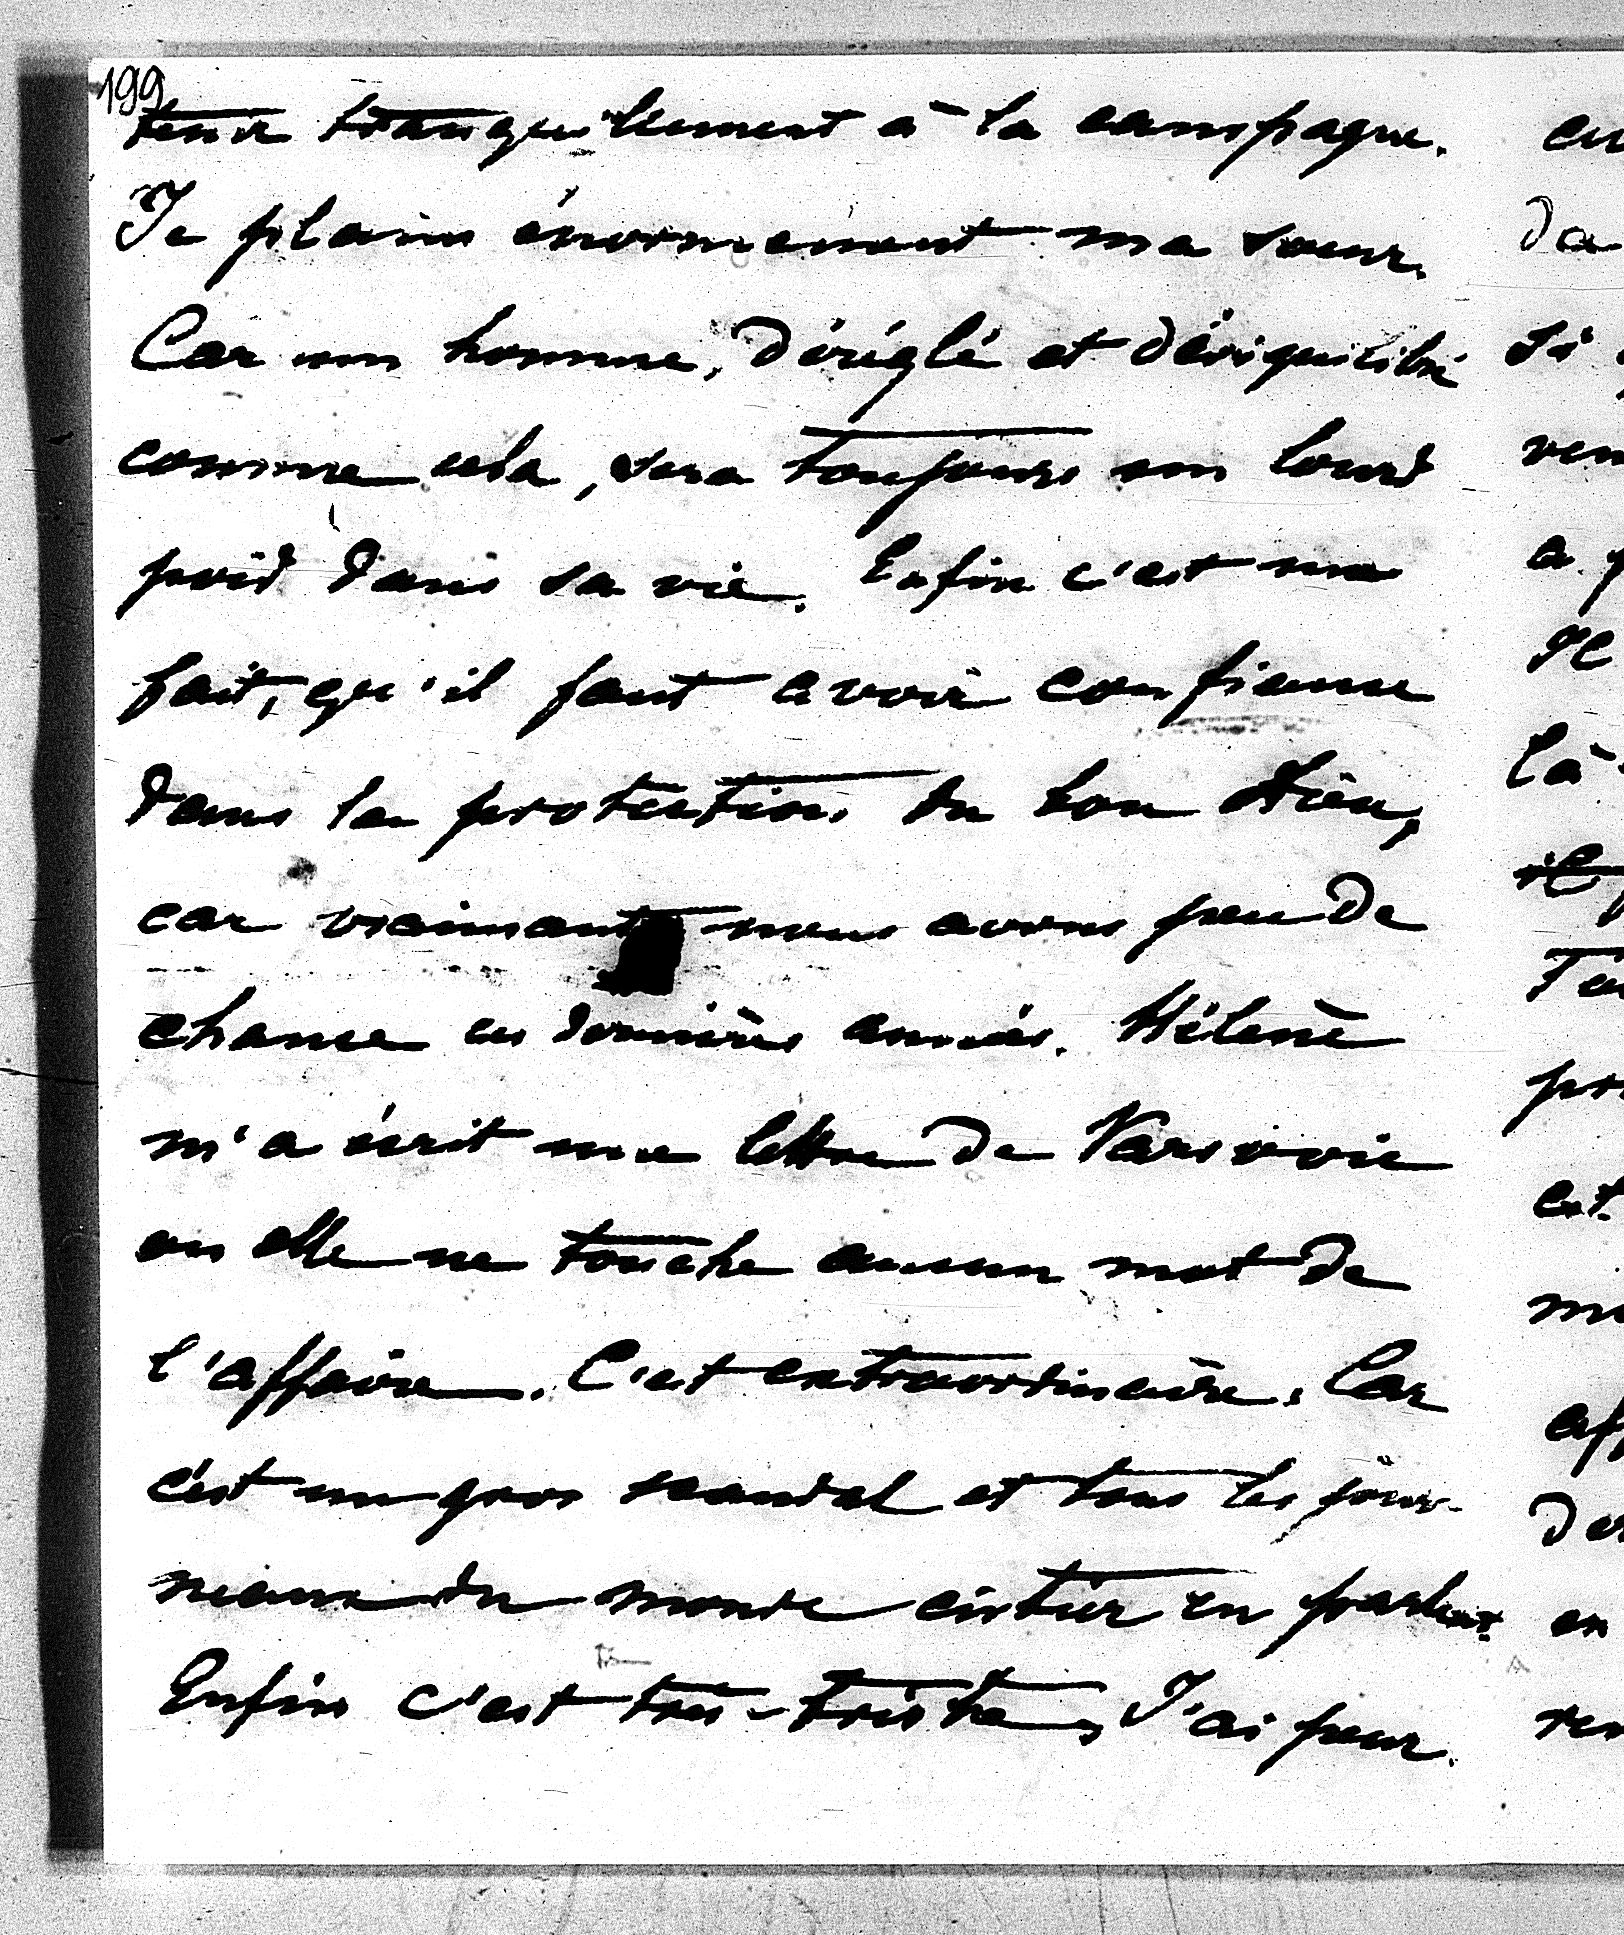 199
tenir tranquillement à la campagne.
Je plains énormément ma soeur.
Car un homme, déréglé et déséquilibré
comme cela, sera toujours un lourd
poid dans sa vie. Enfin c'est un
fait, qu'il faut avoir confiance
dans la protection du bon Dieu,
car vraimant nous avons peu de
chance ces dernières années. Hélène
m'a écrit une lettre de Varsovie
ou elle ne touche aucun mot de
l'affaire. C'est extraordinaire. Car
c'est un gros scandal et tous les jour-
neaux du monde entier en parlent.
Enfin c'est très-triste, J'ai peur.